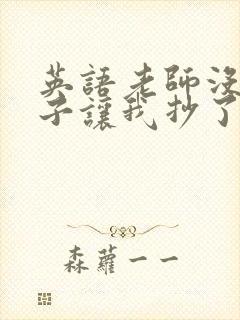 英語老師沒
子讓我抄了
森蘿一一